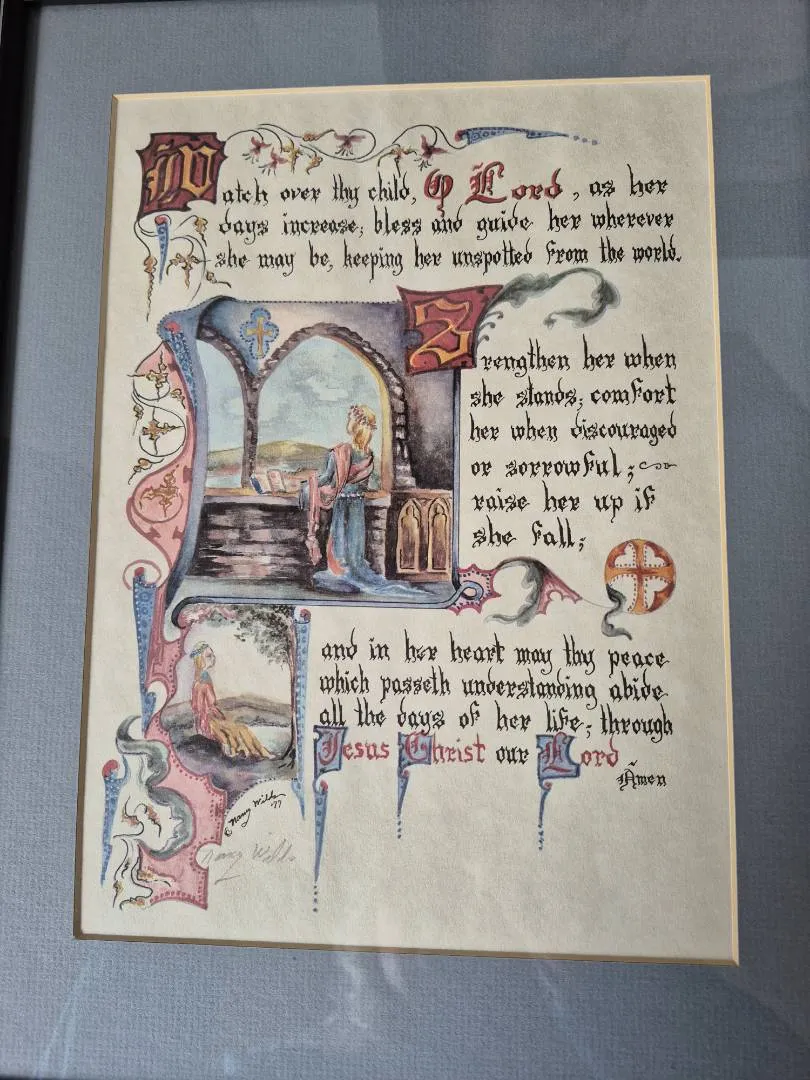 Watch over thy child, O Lord, as her
days increase; bless and guide her wherever
she may be, keeping her unspotted from the world.
Strengthen her when
she stands; comfort
her when discouraged
or sorrowful;
raise her up if
she fall;
and in her heart may thy peace
which passeth understanding abide
all the days of her life; through
Jesus Christ our Lord
Amen
© Nancy Wilds '77
Nancy Wilds